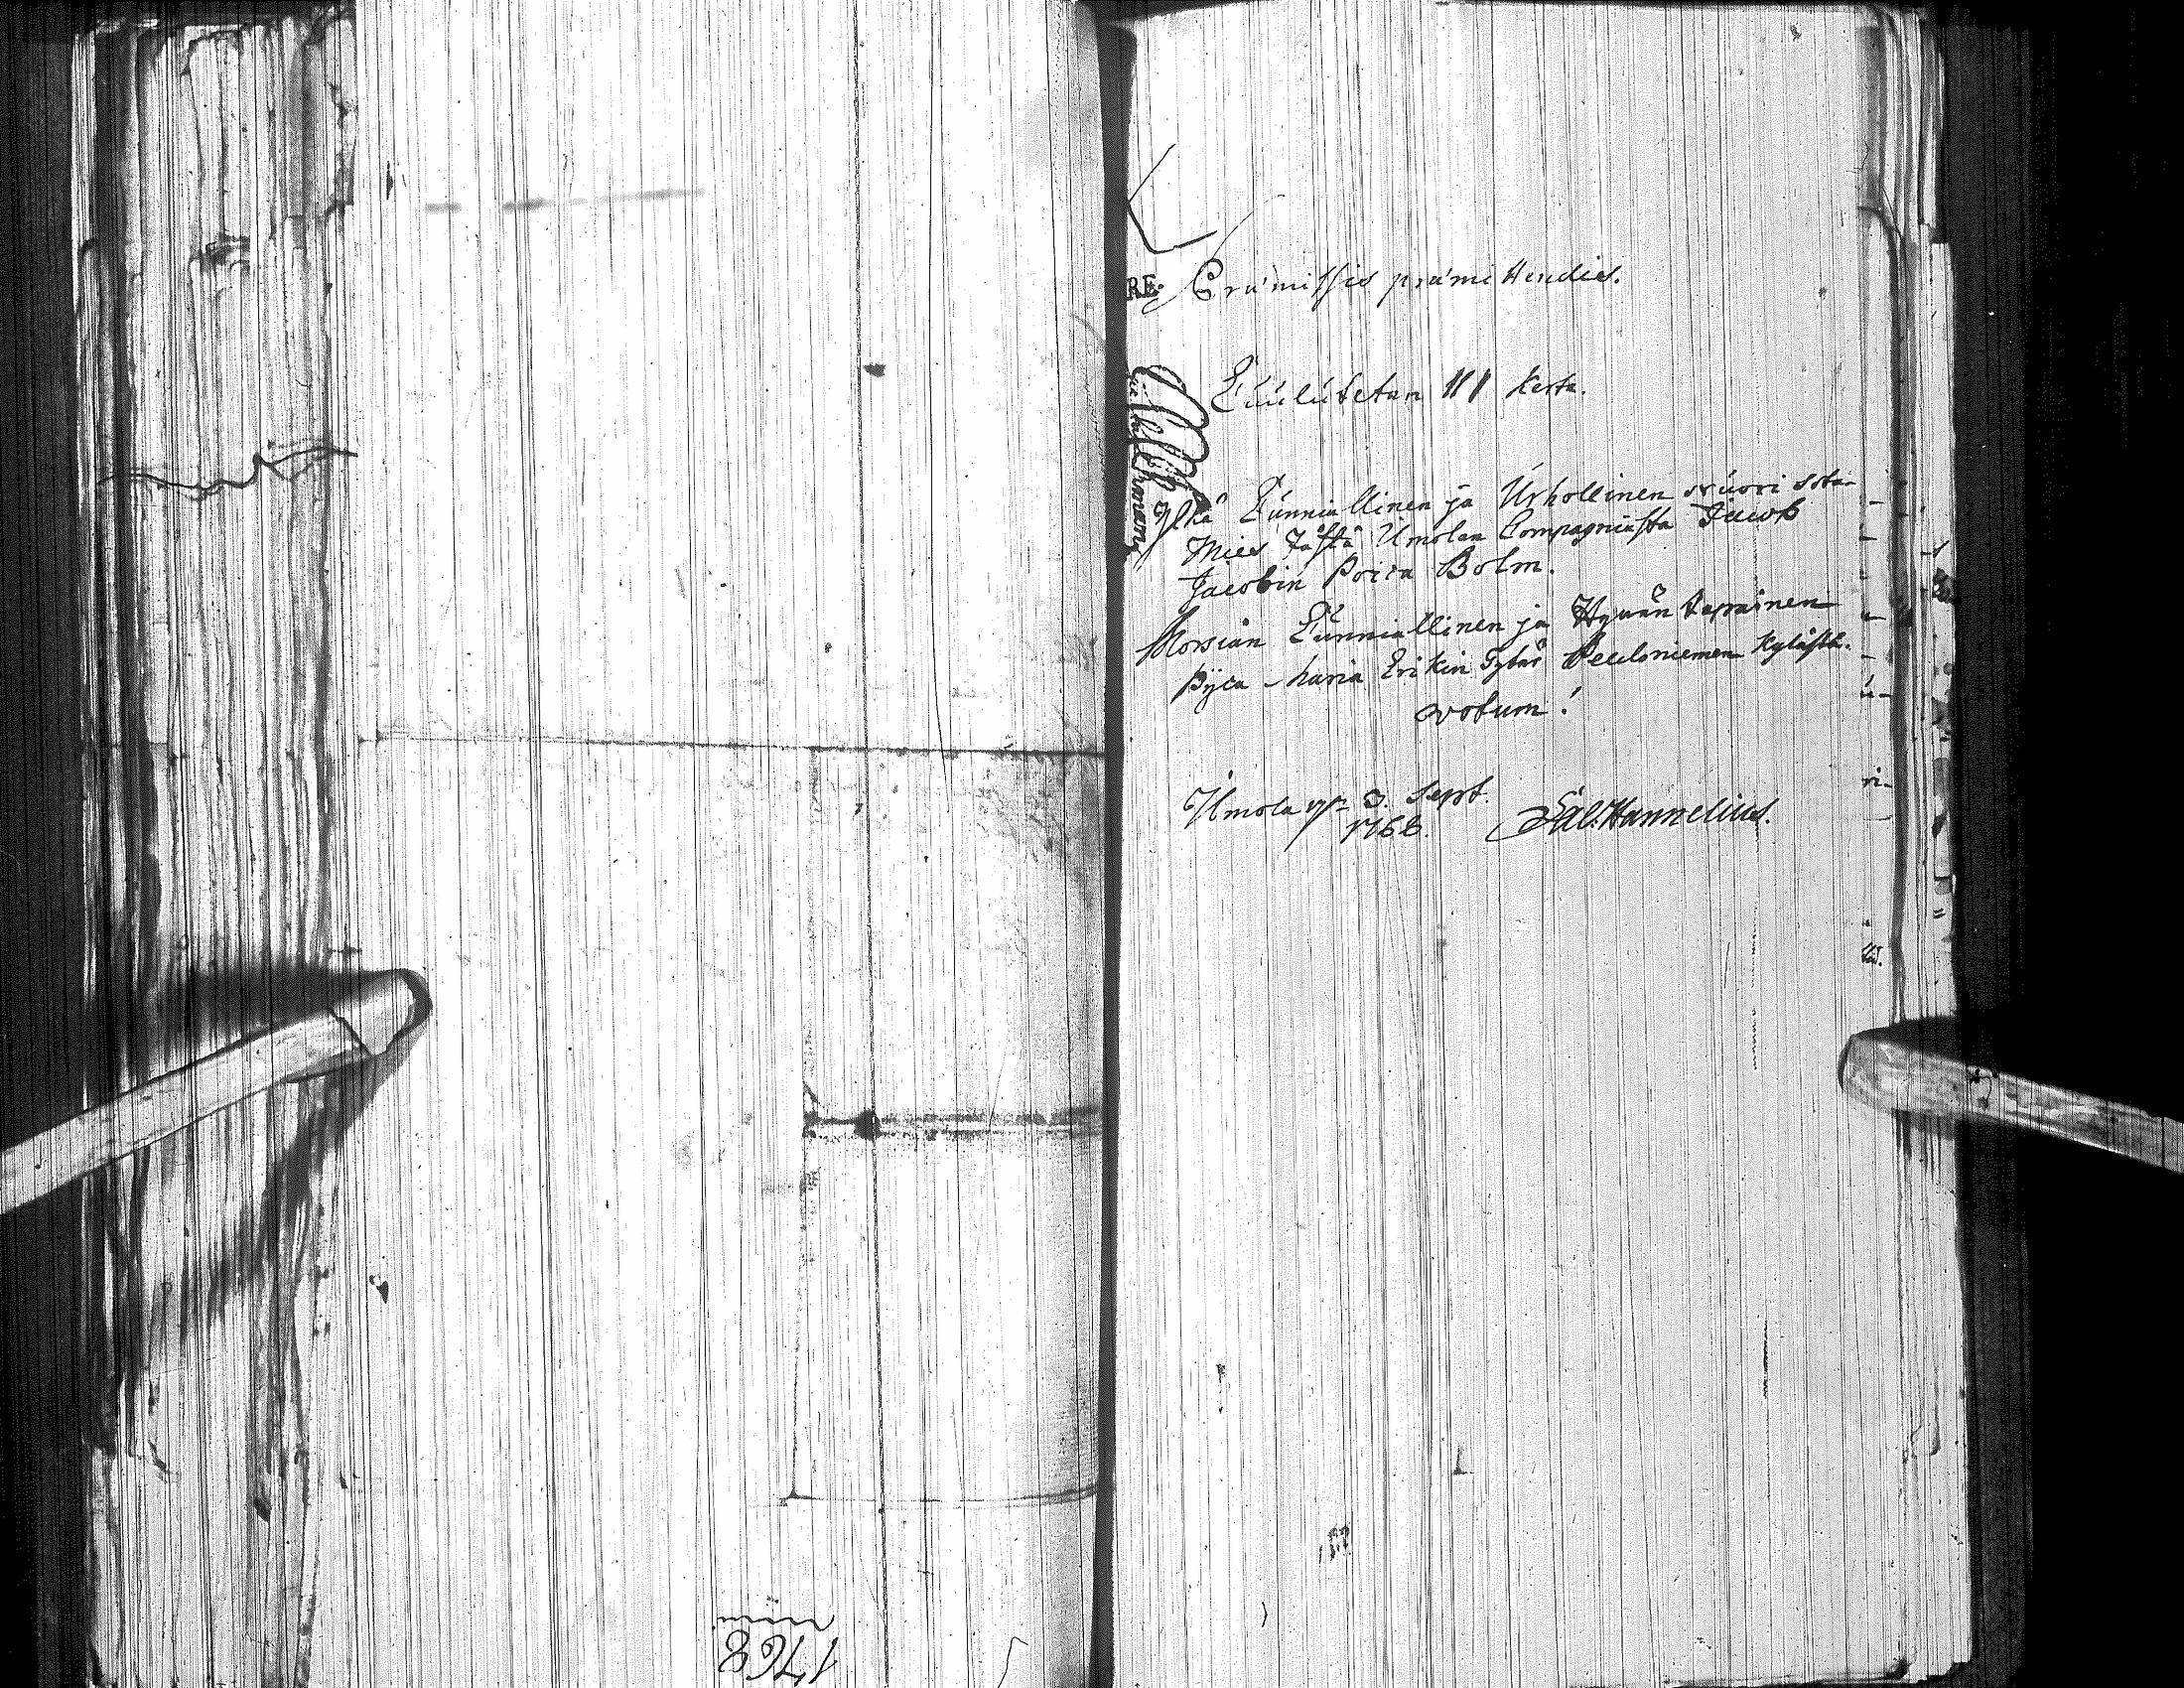 1768
RE.
Præmissis præmittendis.
Cuulutetan III Kerta.
Ylkä Cunniallinen ja Urhollinen nuori Sota-
Mies Tästä Umolan Compagniasta Jacob
Jacobin Poica Bolm.
Morsian Cunniallinen ja Hywän tapainen
Pijca Maria Erikin Tytär Kylästä.
votum!
Umola 3. Sept.
1768.
Sal. Hannelius.